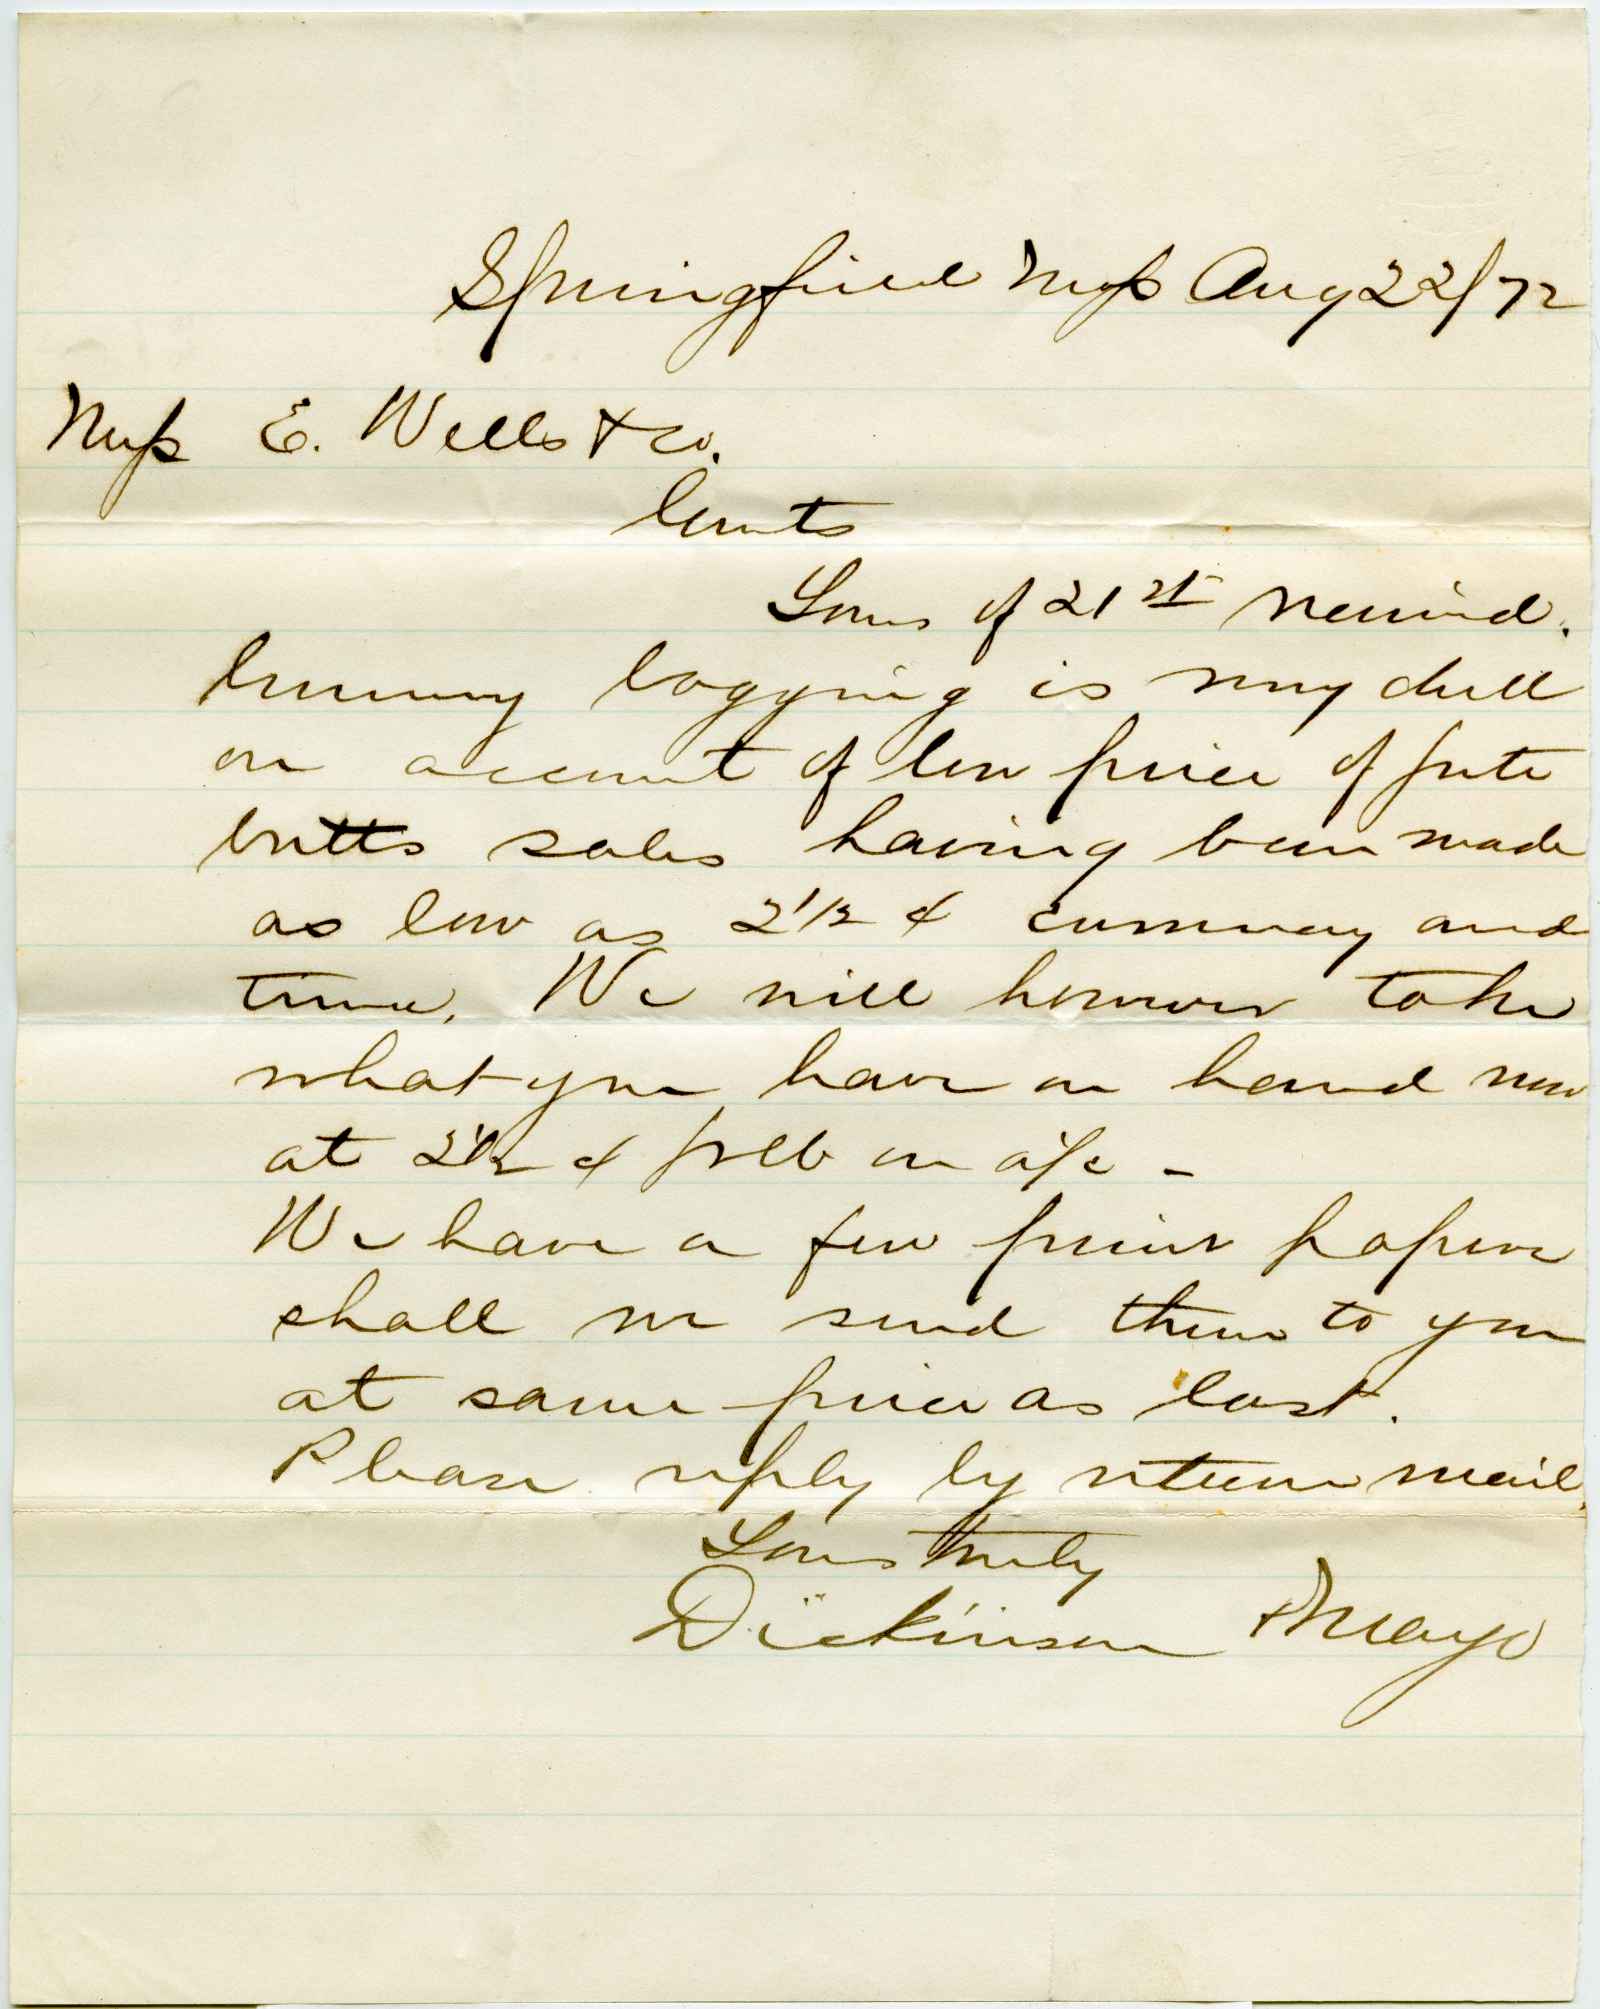 Springfield Mass Aug 22/72
Mess E. Wells & Co.
Gents
Yours of 21st received.
Gunny bagging is very dull
on account of low price of jute
butts sales having been made
as low as 2 1/2 ¢ currency and
time. We will however take
what you have on hand now
at 2 1/2 ¢ pr lb on a/c -
We have a few prime papers
shall we send them to you
at same price as last.
Please reply by return mail.
Yours truly
Dickinson & Mayo